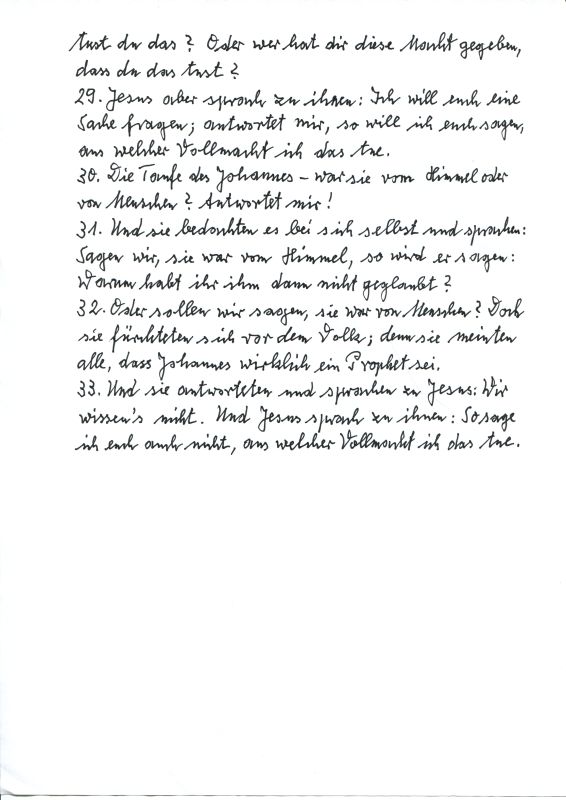 tust du das? Oder wer hat dir diese Macht gegeben,
dass du das tust?
29. Jesus aber sprach zu ihnen: Ich will euch eine
Sache fragen; antwortet mir, so will ich euch sagen,
aus welcher Vollmacht ich das tue.
30. Die Taufe des Johannes – war sie vom Himmel oder
von Menschen? Antwortet mir!
31. Und sie bedachten es bei sich selbst und sprachen:
Sagen wir, sie war vom Himmel, so wird er sagen:
Warum habt ihr ihm dann nicht geglaubt?
32. Oder sollen wir sagen, sie war von Menschen? Doch
sie fürchteten sich vor dem Volk; denn sie meinten
alle, dass Johannes wirklich ein Prophet sei.
33. Und sie antworteten und sprachen zu Jesus: Wir
wissen's nicht. Und Jesus sprach zu ihnen: So sage
ich euch auch nicht, aus welcher Vollmacht ich das tue.